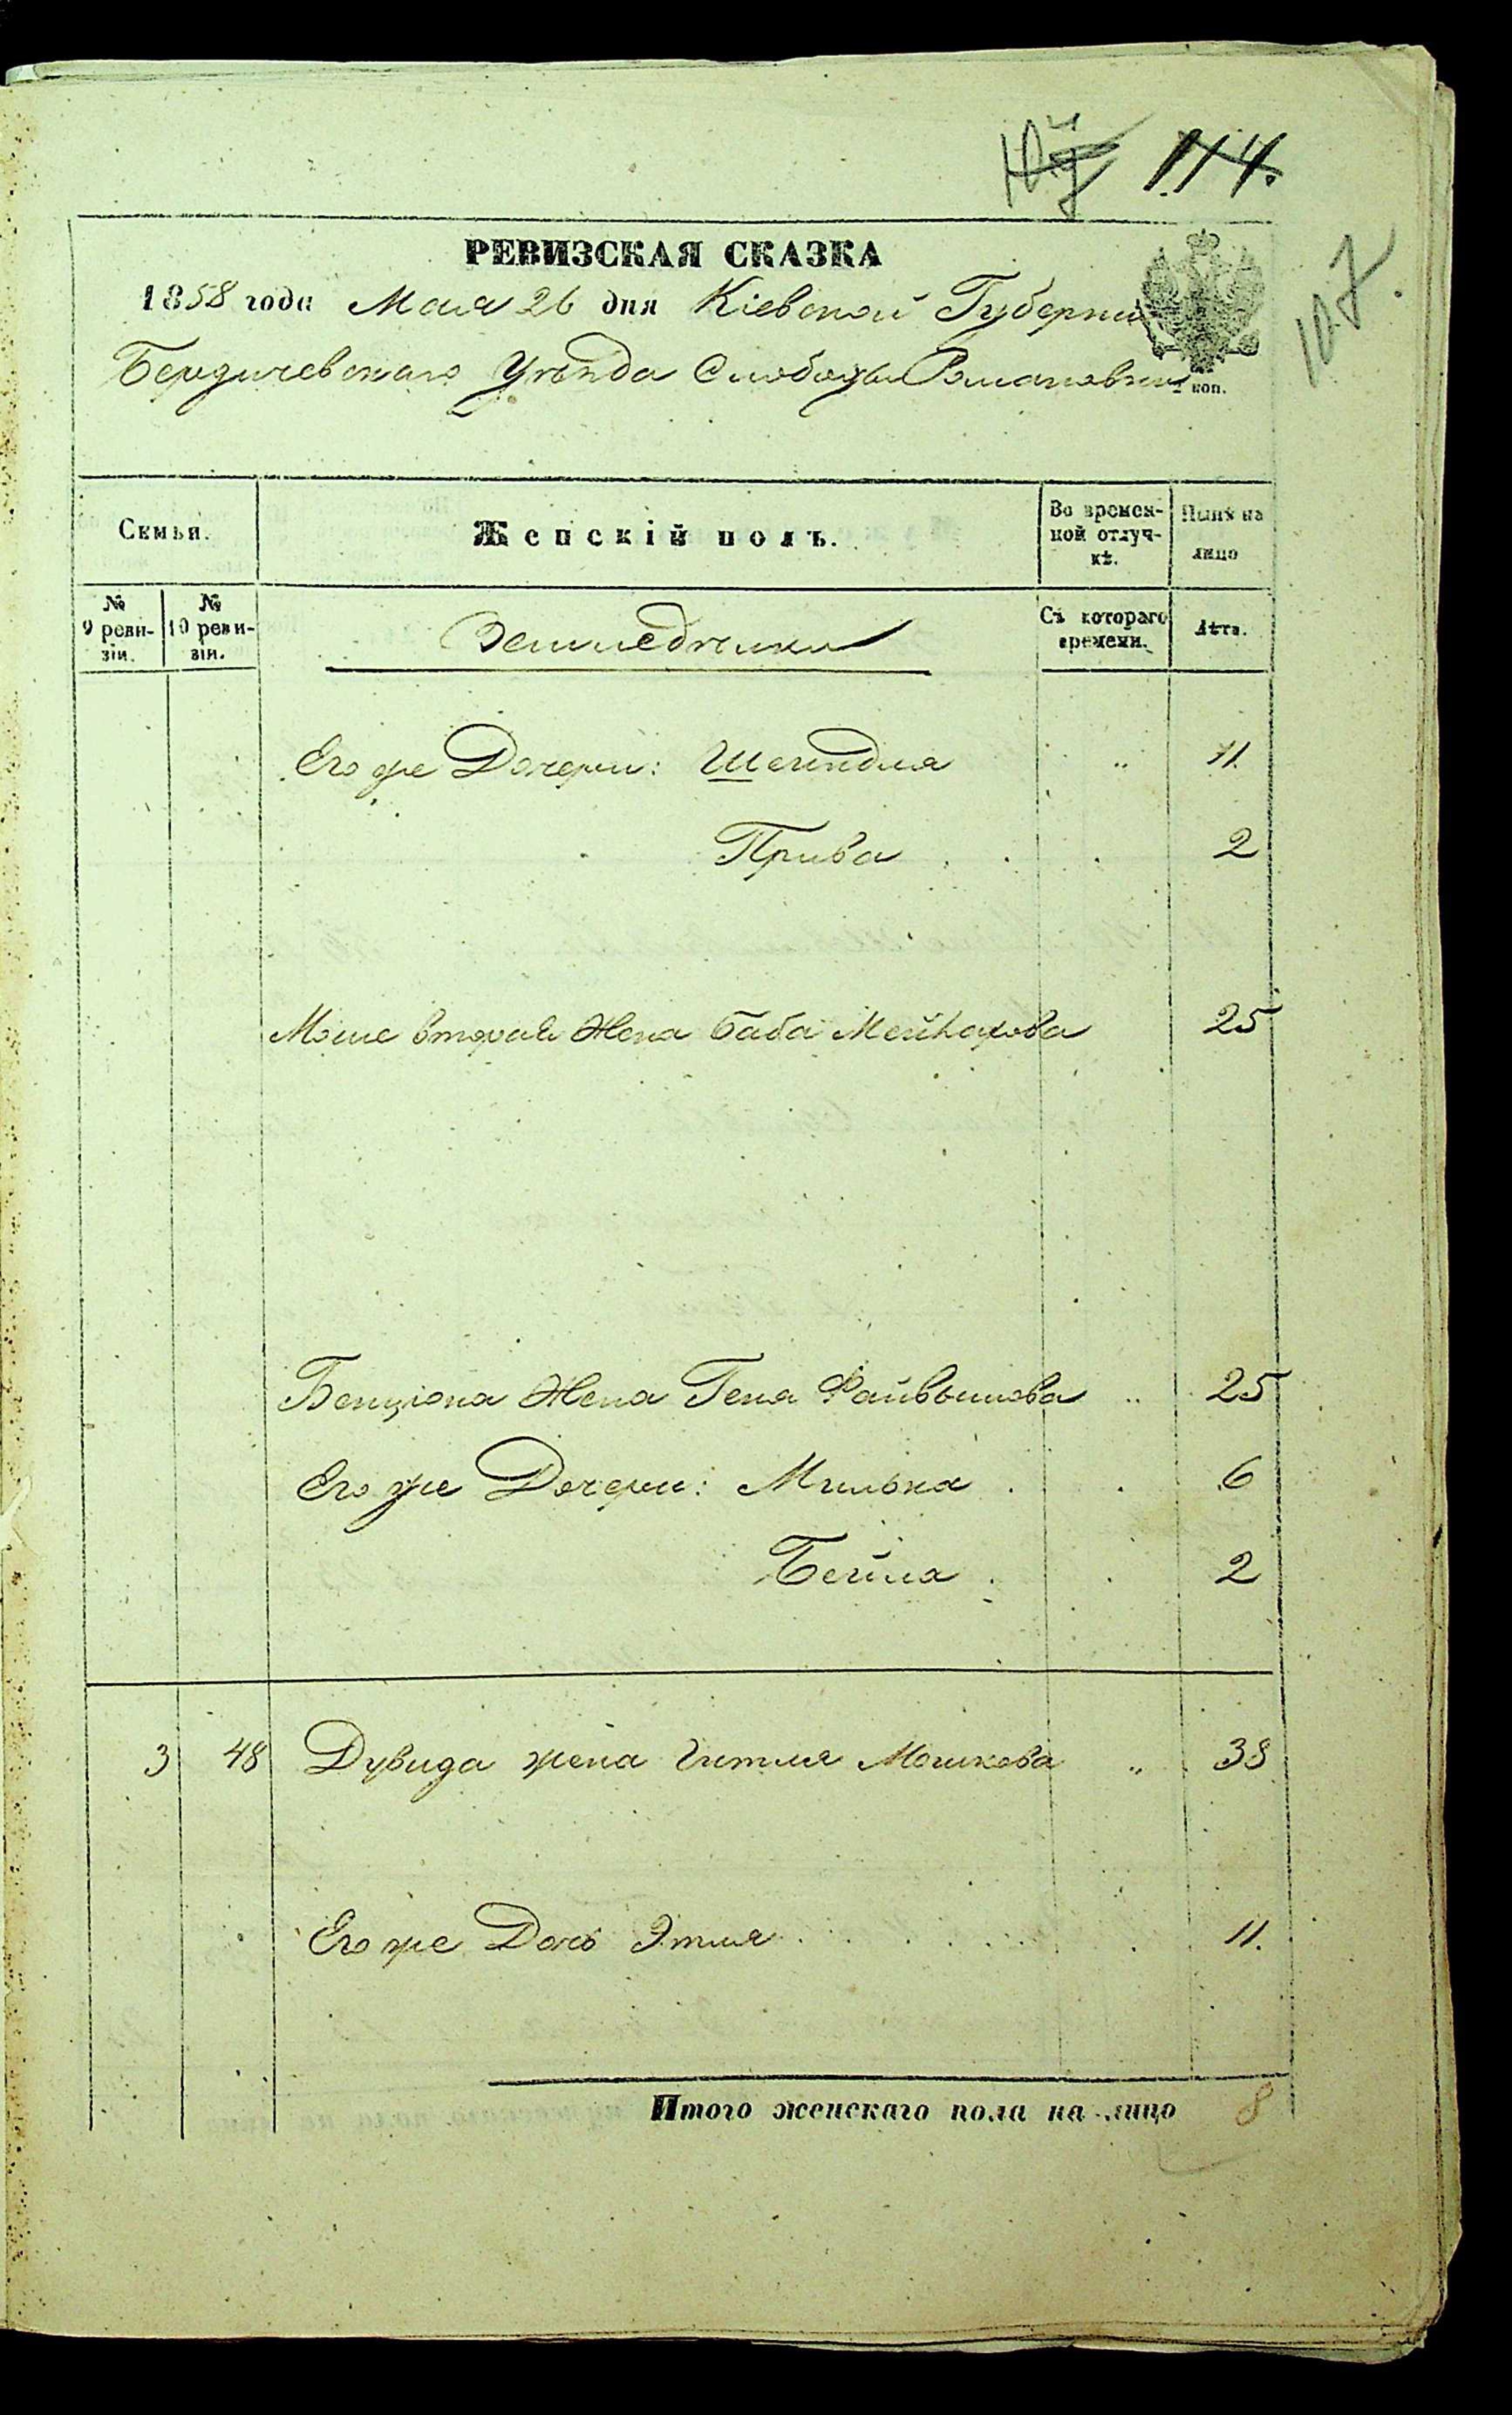 114.
107.
РЕВИЗСКАЯ СКАЗКА
1858 года Мая 26 дня Кіевской Губерніи
Бердичевскаго Уѣзда Слободы Романовки
коп.
Семья. Женскій полъ. Во времен-ной отлуч-кѣ. Нынѣ на лицо
№ 9 реви-зіи. № 10 реви-зіи. Земледѣльцы Съ котораго времени. Лѣта.
Его же Дочери: Шейндля " 11.
Прива 2
Мошe вторая Жена Баба Мейнахова 25
Бенціона Жена Геня Файвышова " 25
Его же Дочери: Милька 6
Бейла 2
3 48 Дувида жена Гитля Мошкова " 38
Его же Дочь Этля 11.
Итого женскаго пола на лицо 8